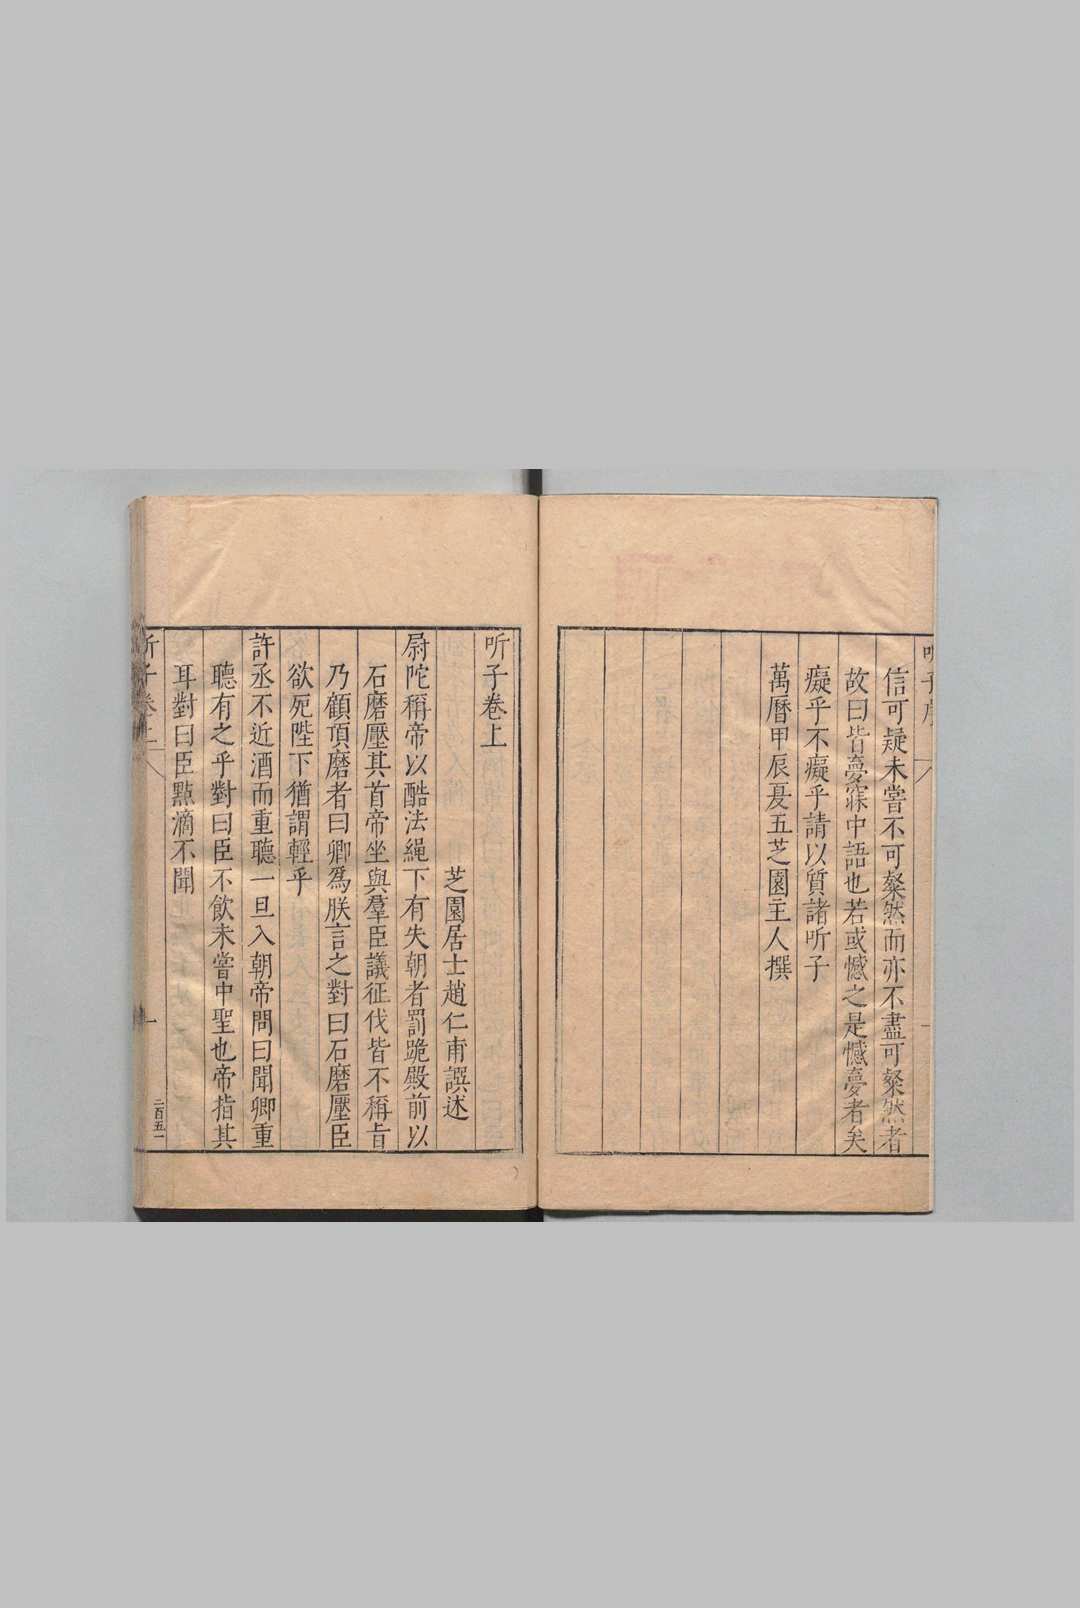 信可疑未嘗不可粲然而亦不盡可粲然者
故曰皆㝱寐中語也若或憾之是憾㝱者矣
癡乎不癡乎請以質諸听子
萬曆甲辰夏五芝園主人撰
听子卷上
芝園居士趙仁甫譔述
尉陀稱帝以酷法繩下有失朝者罰跪殿前以
石磨壓其首帝坐與羣臣議征伐皆不稱旨
乃顧頂磨者曰卿爲朕言之對曰石磨壓臣
欲死陛下猶謂輕乎
許丞不近酒而重聽一旦入朝帝問曰聞卿重
聽有之乎對曰臣不飲未嘗中聖也帝指其
耳對曰臣點滴不聞
听子卷上
一
二百五一